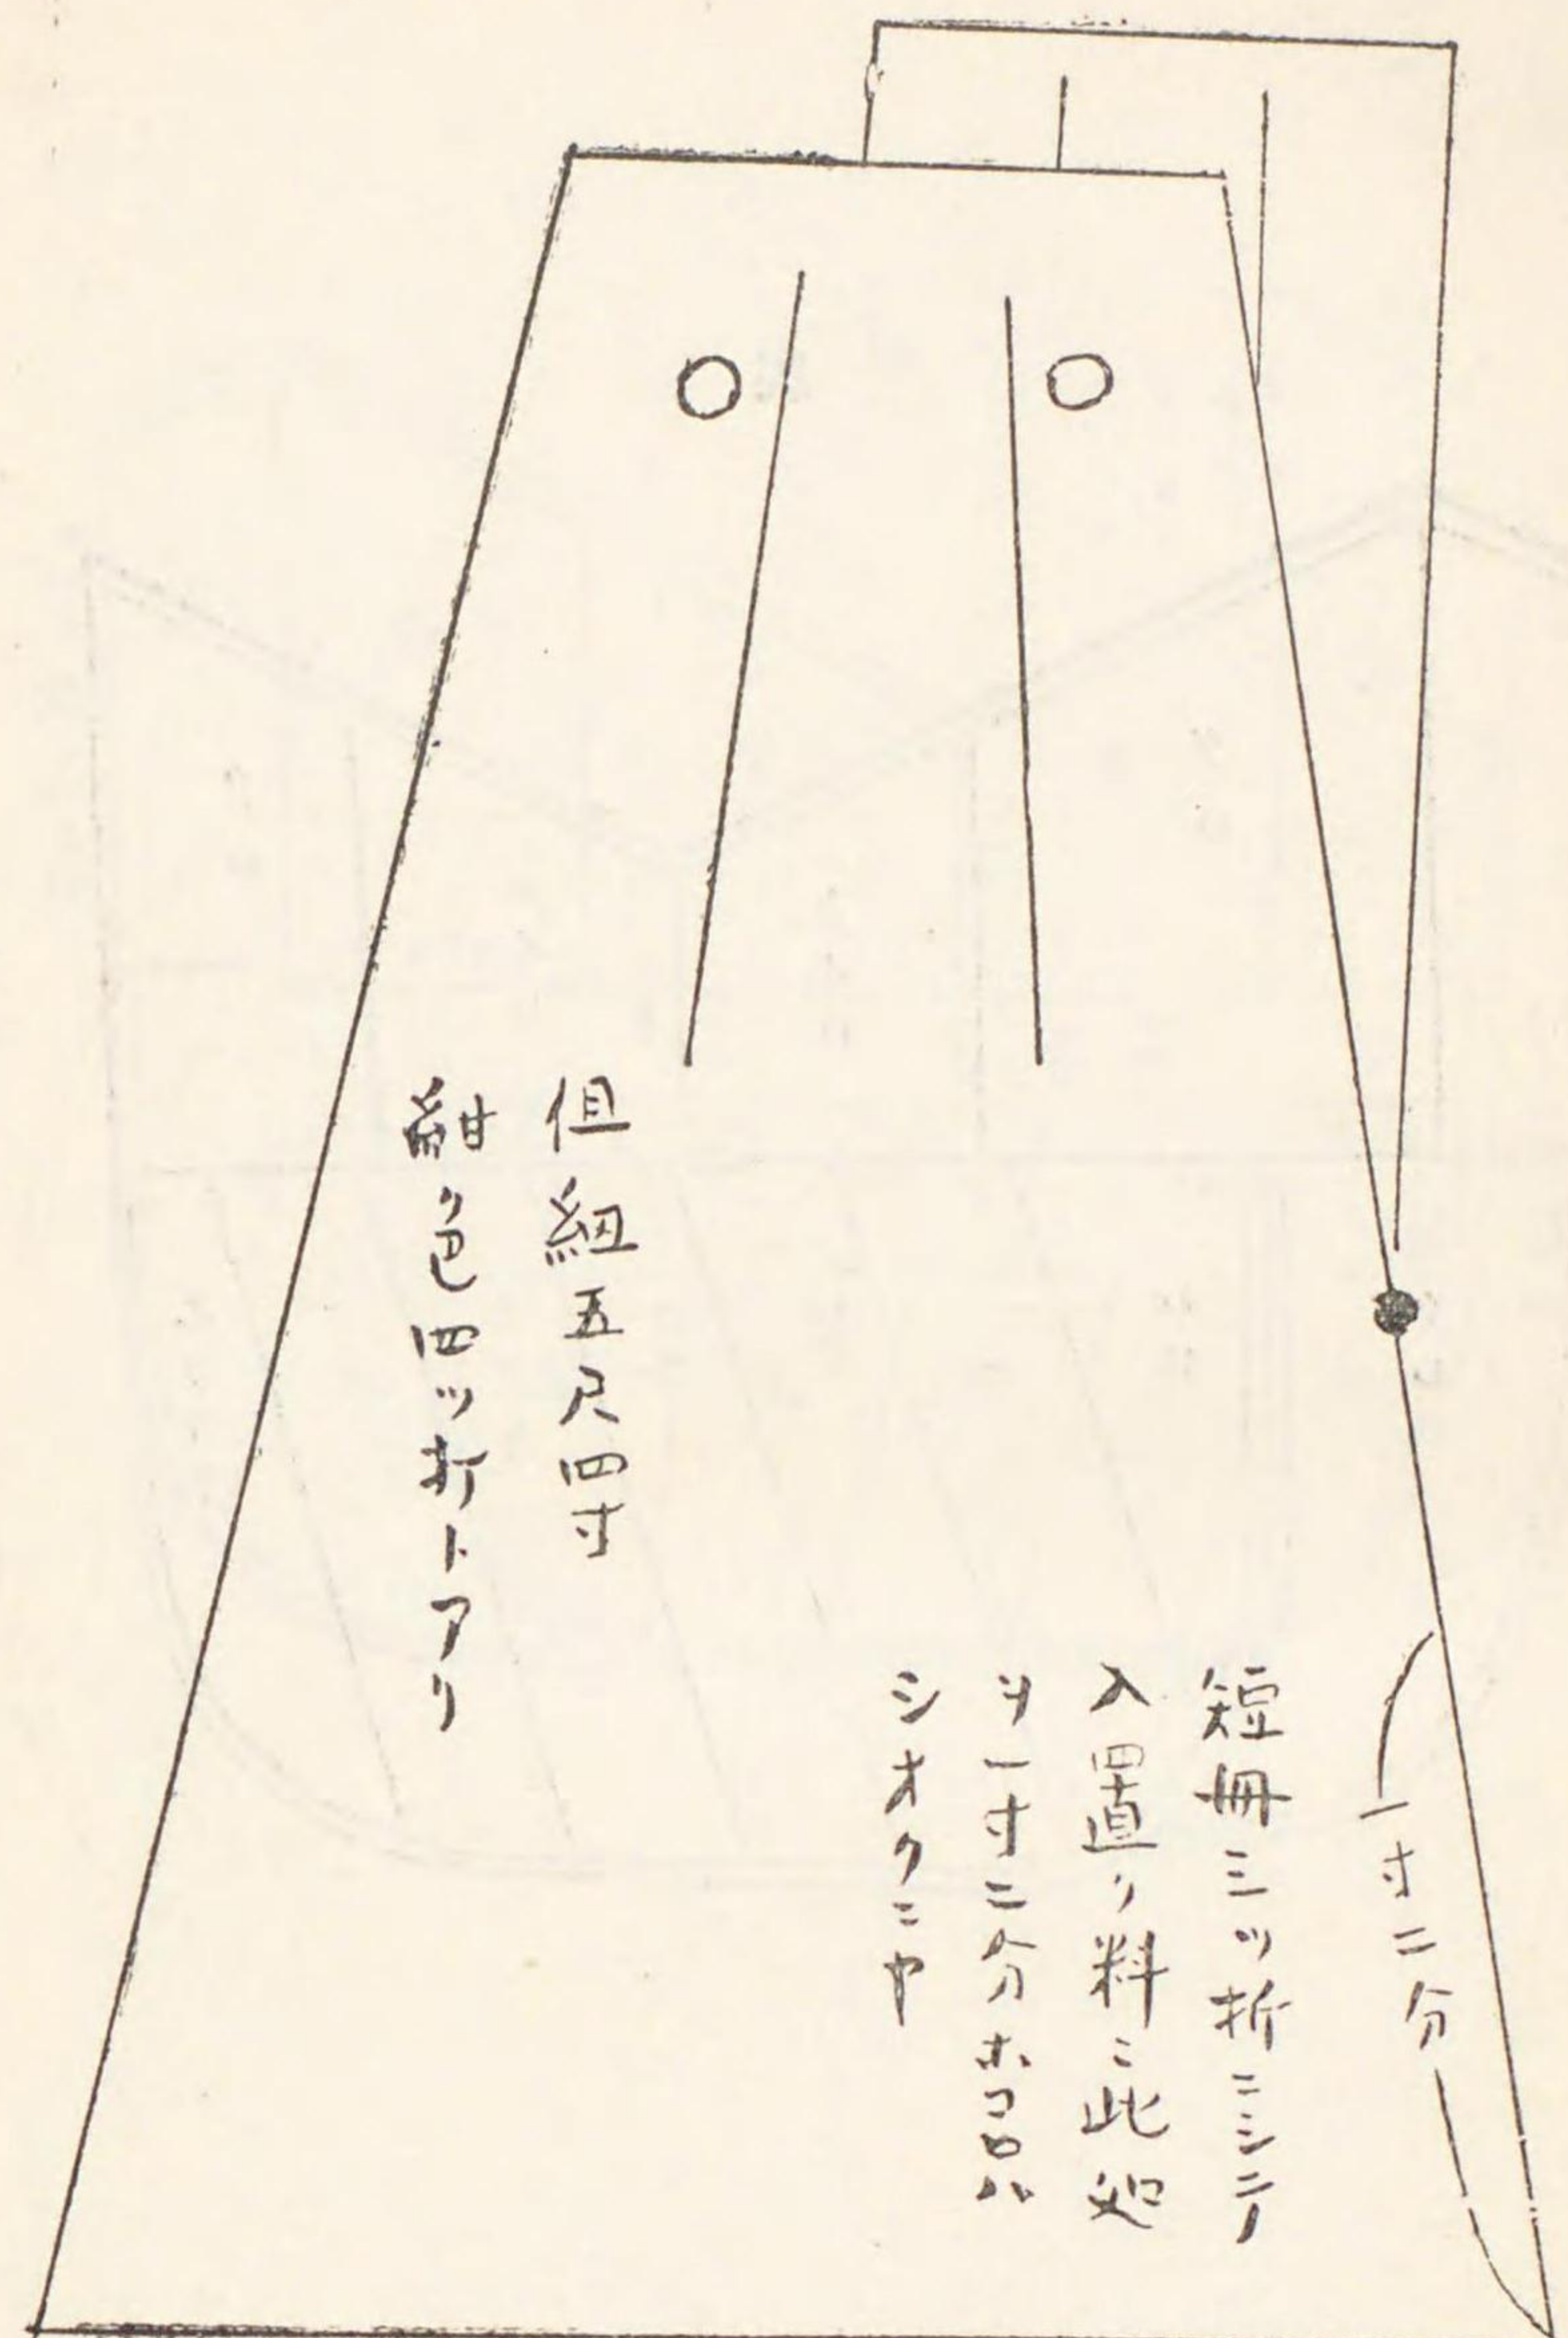 一寸二分
短冊三ッ折ニシテ
入置ク料ニ此処
ヲ一寸二分ホコロバ
シオクニヤ
但紐五尺四寸
紺ク色四ッ折トアリ